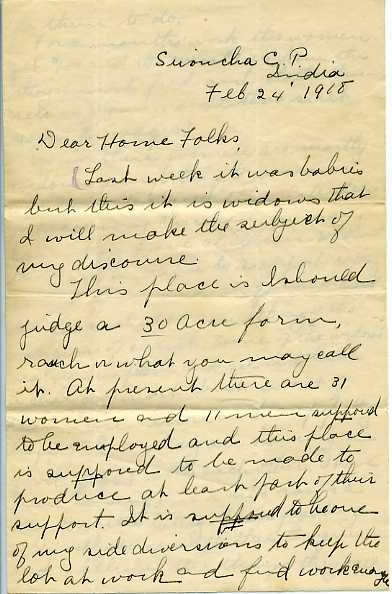 Sironcha C. P.
India
Feb 24' 1918
Dear Home Folks,
Last week it was babies
but this it is widows that
I will make the subject of
my discourse.
This place is I should
judge a 30 Acre farm,
ranch or what you may call
it. At present there are 31
women and 11 men supposd
to be employed and this place
is supposed to be made to
produce at least part of their
support. It is supposd to be one
of my side diversions to keep the
lot at work and find work enough